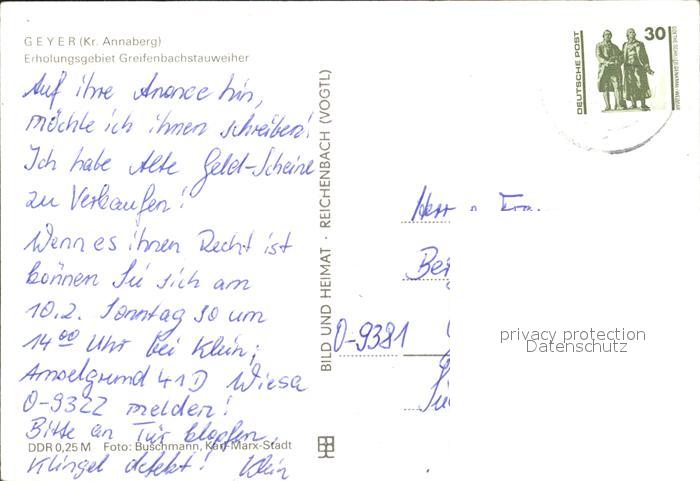 GEYER (Kr. Annaberg)
Erholungsgebiet Greifenbachstauweiher
Auf ihre Anonce hin,
möchte ich ihnen schreiben!
Ich habe Alte Geld-Scheine
zu Verkaufen!
Wenn es ihnen Recht ist
können Sie sich am
10.2. Sonntag so um
14 00 Uhr bei Klein;
Amselgrund 41D Wiesa
O-9322 melden!
Bitte an Tür klopfen,
DDR 0,25 M Foto: Buschmann, Karl-Marx-Stadt
Klingel defekt! Klein
BILD UND HEIMAT · REICHENBACH (VOGTL)
DEUTSCHE POST
30
GOETHE-SCHILLER-DENKMAL · WEIMAR
Herr
O-9381
privacy protection
Datenschutz